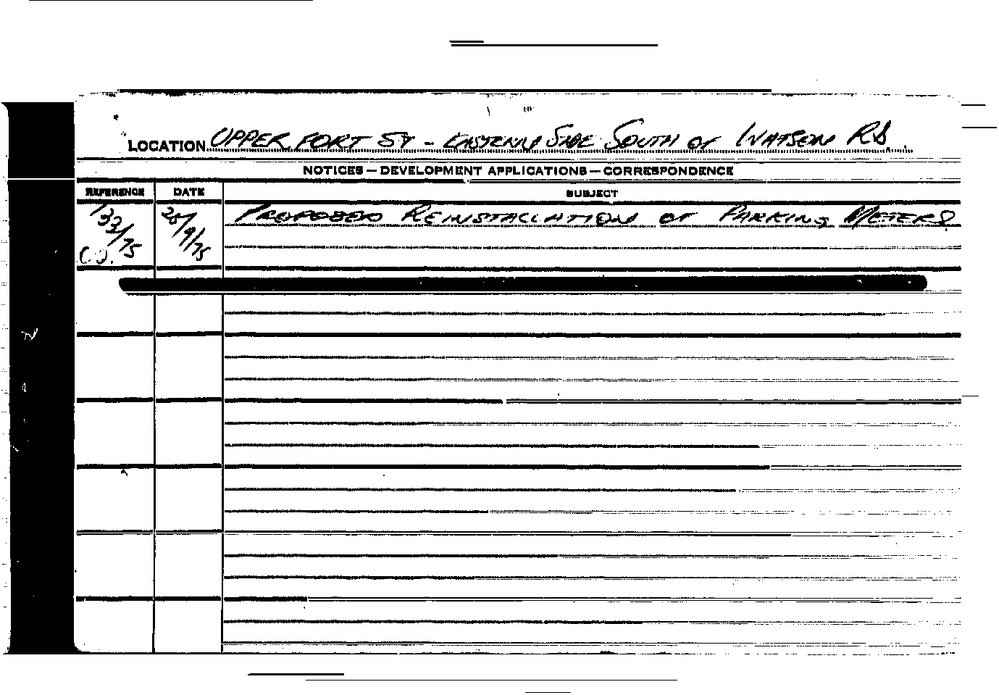 LOCATION UPPER FORT ST - EASTERN SIDE SOUTH OF WATSON RD.
NOTICES — DEVELOPMENT APPLICATIONS — CORRESPONDENCE
REFERENCE DATE SUBJECT
133/75 25/9/75 PROPOSED REINSTALLATION OF PARKING METERS